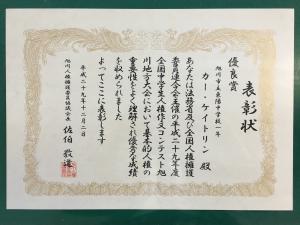 表彰状
優良賞
旭川市立東陽中学校一年
カー・ケイトリン 殿
あなたは法務省及び全国人権擁護
委員連合会主催の平成二十九年度
全国中学生人権作文コンテスト旭
川地方大会において基本的人権の
重要性をよく理解され優秀な成績
を収められました
よってここに表彰します
平成二十九年十二月二日
旭川人権擁護委員協議会長
佐伯